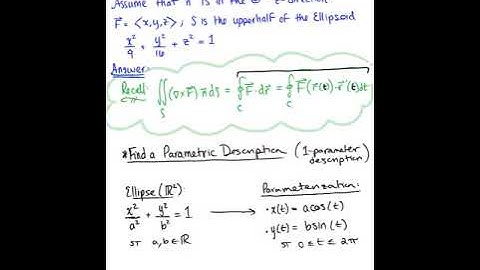 Assume that n is of the ⊕ z-direction.
F⃗ = <x, y, z>; S is the upperhalf of the Ellipsoid
x²/9 + y²/16 + z² = 1
Answer:
Recall: ∬_S (∇×F⃗)·n⃗ dS = ∮_C F⃗·dr⃗ = ∮_C F⃗(r⃗(t))·r⃗'(t)dt
*Find a Parametric Description (1-parameter description)
Ellipse (ℝ²)
Parameterization:
x²/a² + y²/b² = 1
• x(t) = a cos(t)
• y(t) = b sin(t)
ST a,b ∈ ℝ
ST 0 ≤ t ≤ 2π